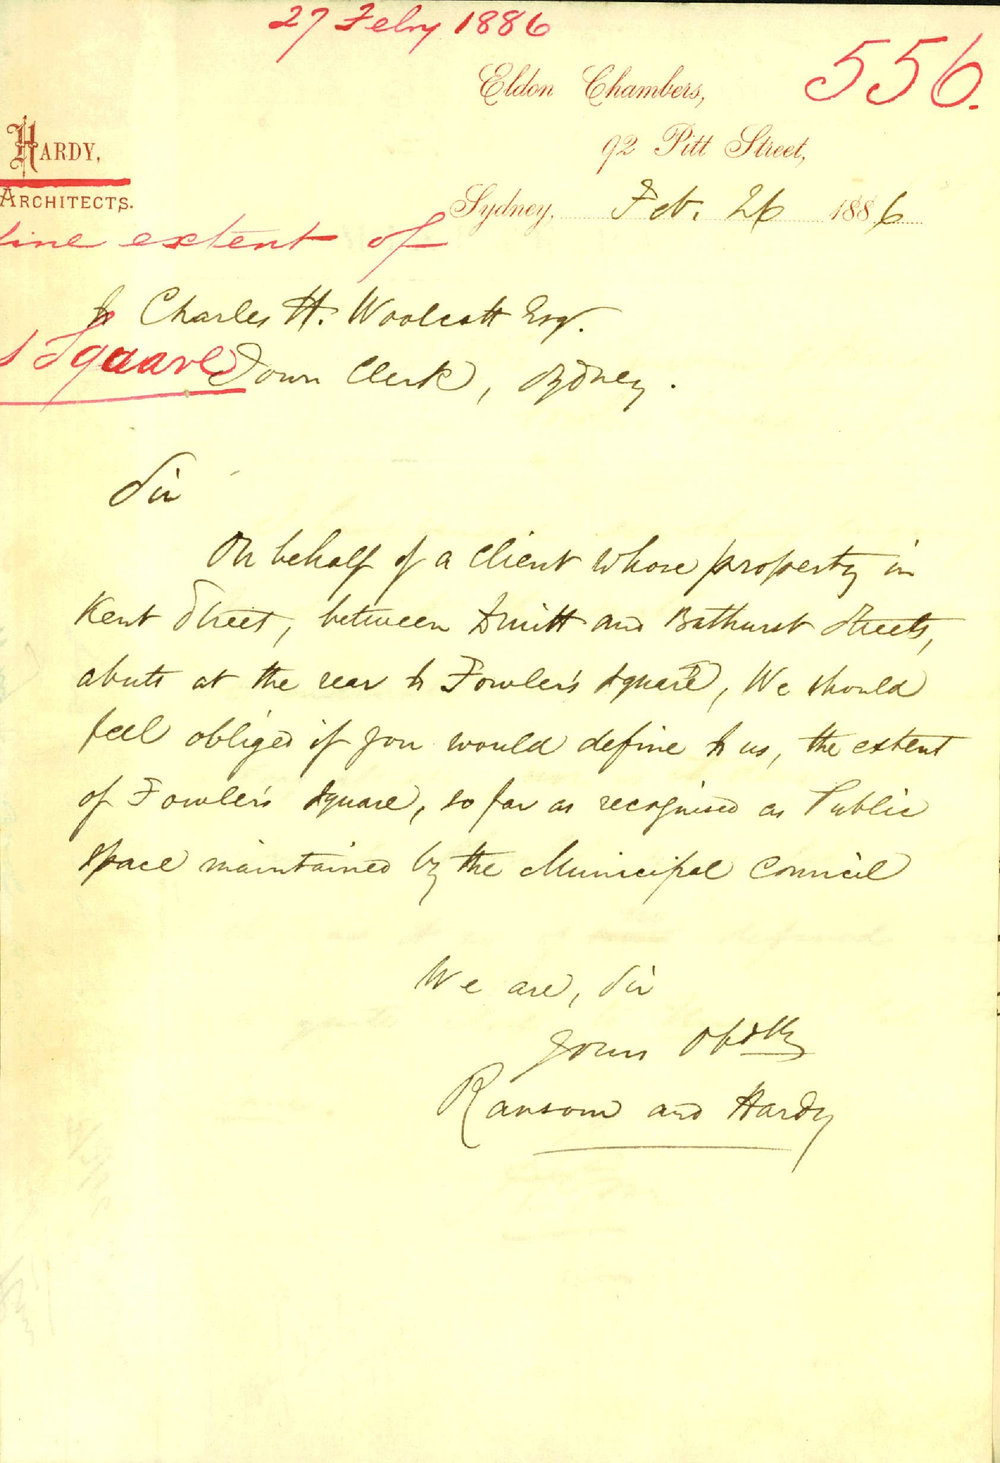 27 Feby 1886
556.
Eldon Chambers,
92 Pitt Street,
HARDY,
ARCHITECTS.
Sydney, Feb. 26 1886
extent of
To Charles H. Woolcott Esqr.
Square
Town Clerk, Sydney.
Sir
On behalf of a client whose property in
Kent Street, between Druitt and Bathurst Streets,
abuts at the rear to Fowler's Square, We should
feel obliged if you would define to us, the extent
of Fowler's Square, so far as recognised as Public
space maintained by the Municipal Council
We are, Sir
Yours Obdtly
Ransom and Hardy